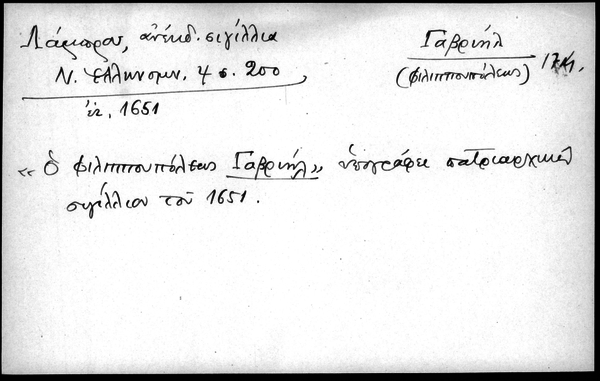 Λάμπρου, ἀνέκδ. σιγίλλια
Ν. Ἑλληνομν. 4 σ. 200
ἔτ. 1651
Γαβριήλ
(Φιλιππουπόλεως)
«Ὁ Φιλιππουπόλεως Γαβριήλ» ὑπογράφει πατριαρχικὸν
σιγίλλιον τοῦ 1651.